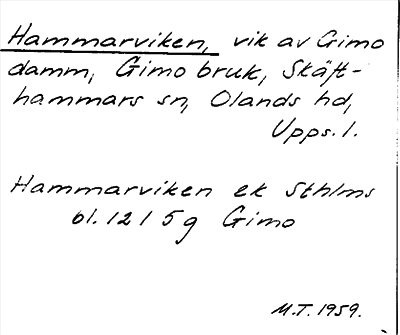 Hammarviken, vik av Gimo
damm, Gimo bruk, Skäft-
hammars sn, Olands hd,
Upps. l.
Hammarviken ek Sthlms
bl. 12 I 5 g Gimo
M.T. 1959.